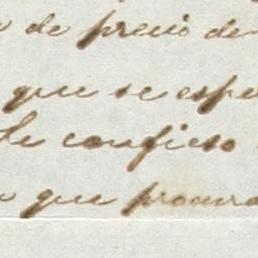 de precio de
que se espe
le confieso
que procura